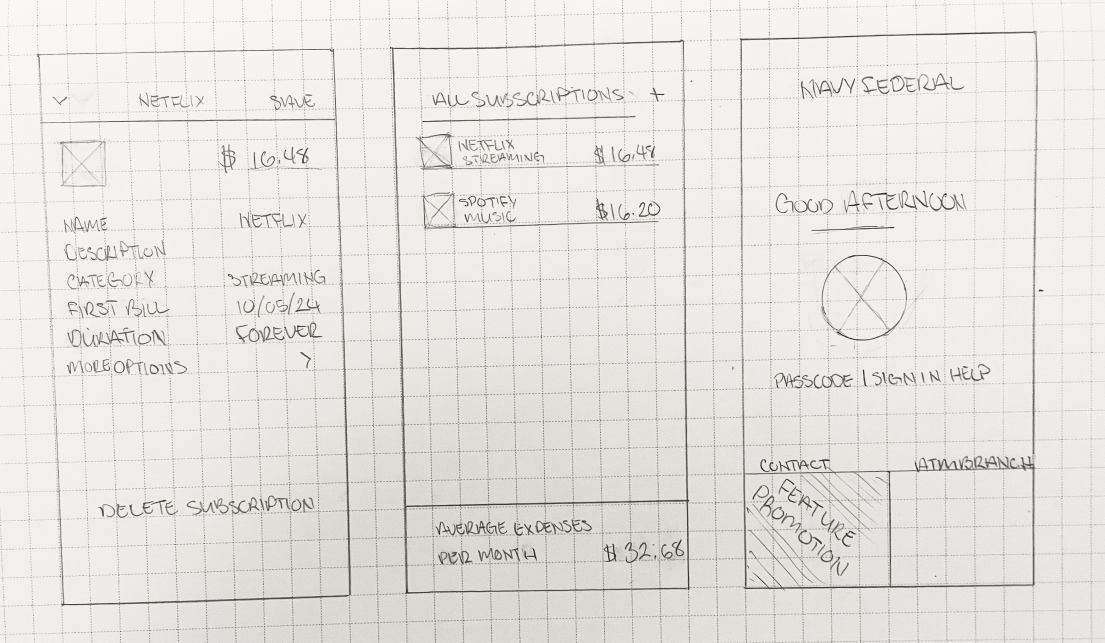 NETFLIX SAVE
$ 16.48
NAME NETFLIX
DESCRIPTION
CATEGORY STREAMING
FIRST BILL 10/05/24
DURATION FOREVER
MORE OPTIONS >
DELETE SUBSCRIPTION
ALL SUBSCRIPTIONS +
NETFLIX
STREAMING $16.48
SPOTIFY
MUSIC $16.20
AVERAGE EXPENSES
PER MONTH $32.68
NAVY FEDERAL
GOOD AFTERNOON
PASSCODE | SIGN IN HELP
CONTACT ATM/BRANCH
FEATURE
PROMOTION